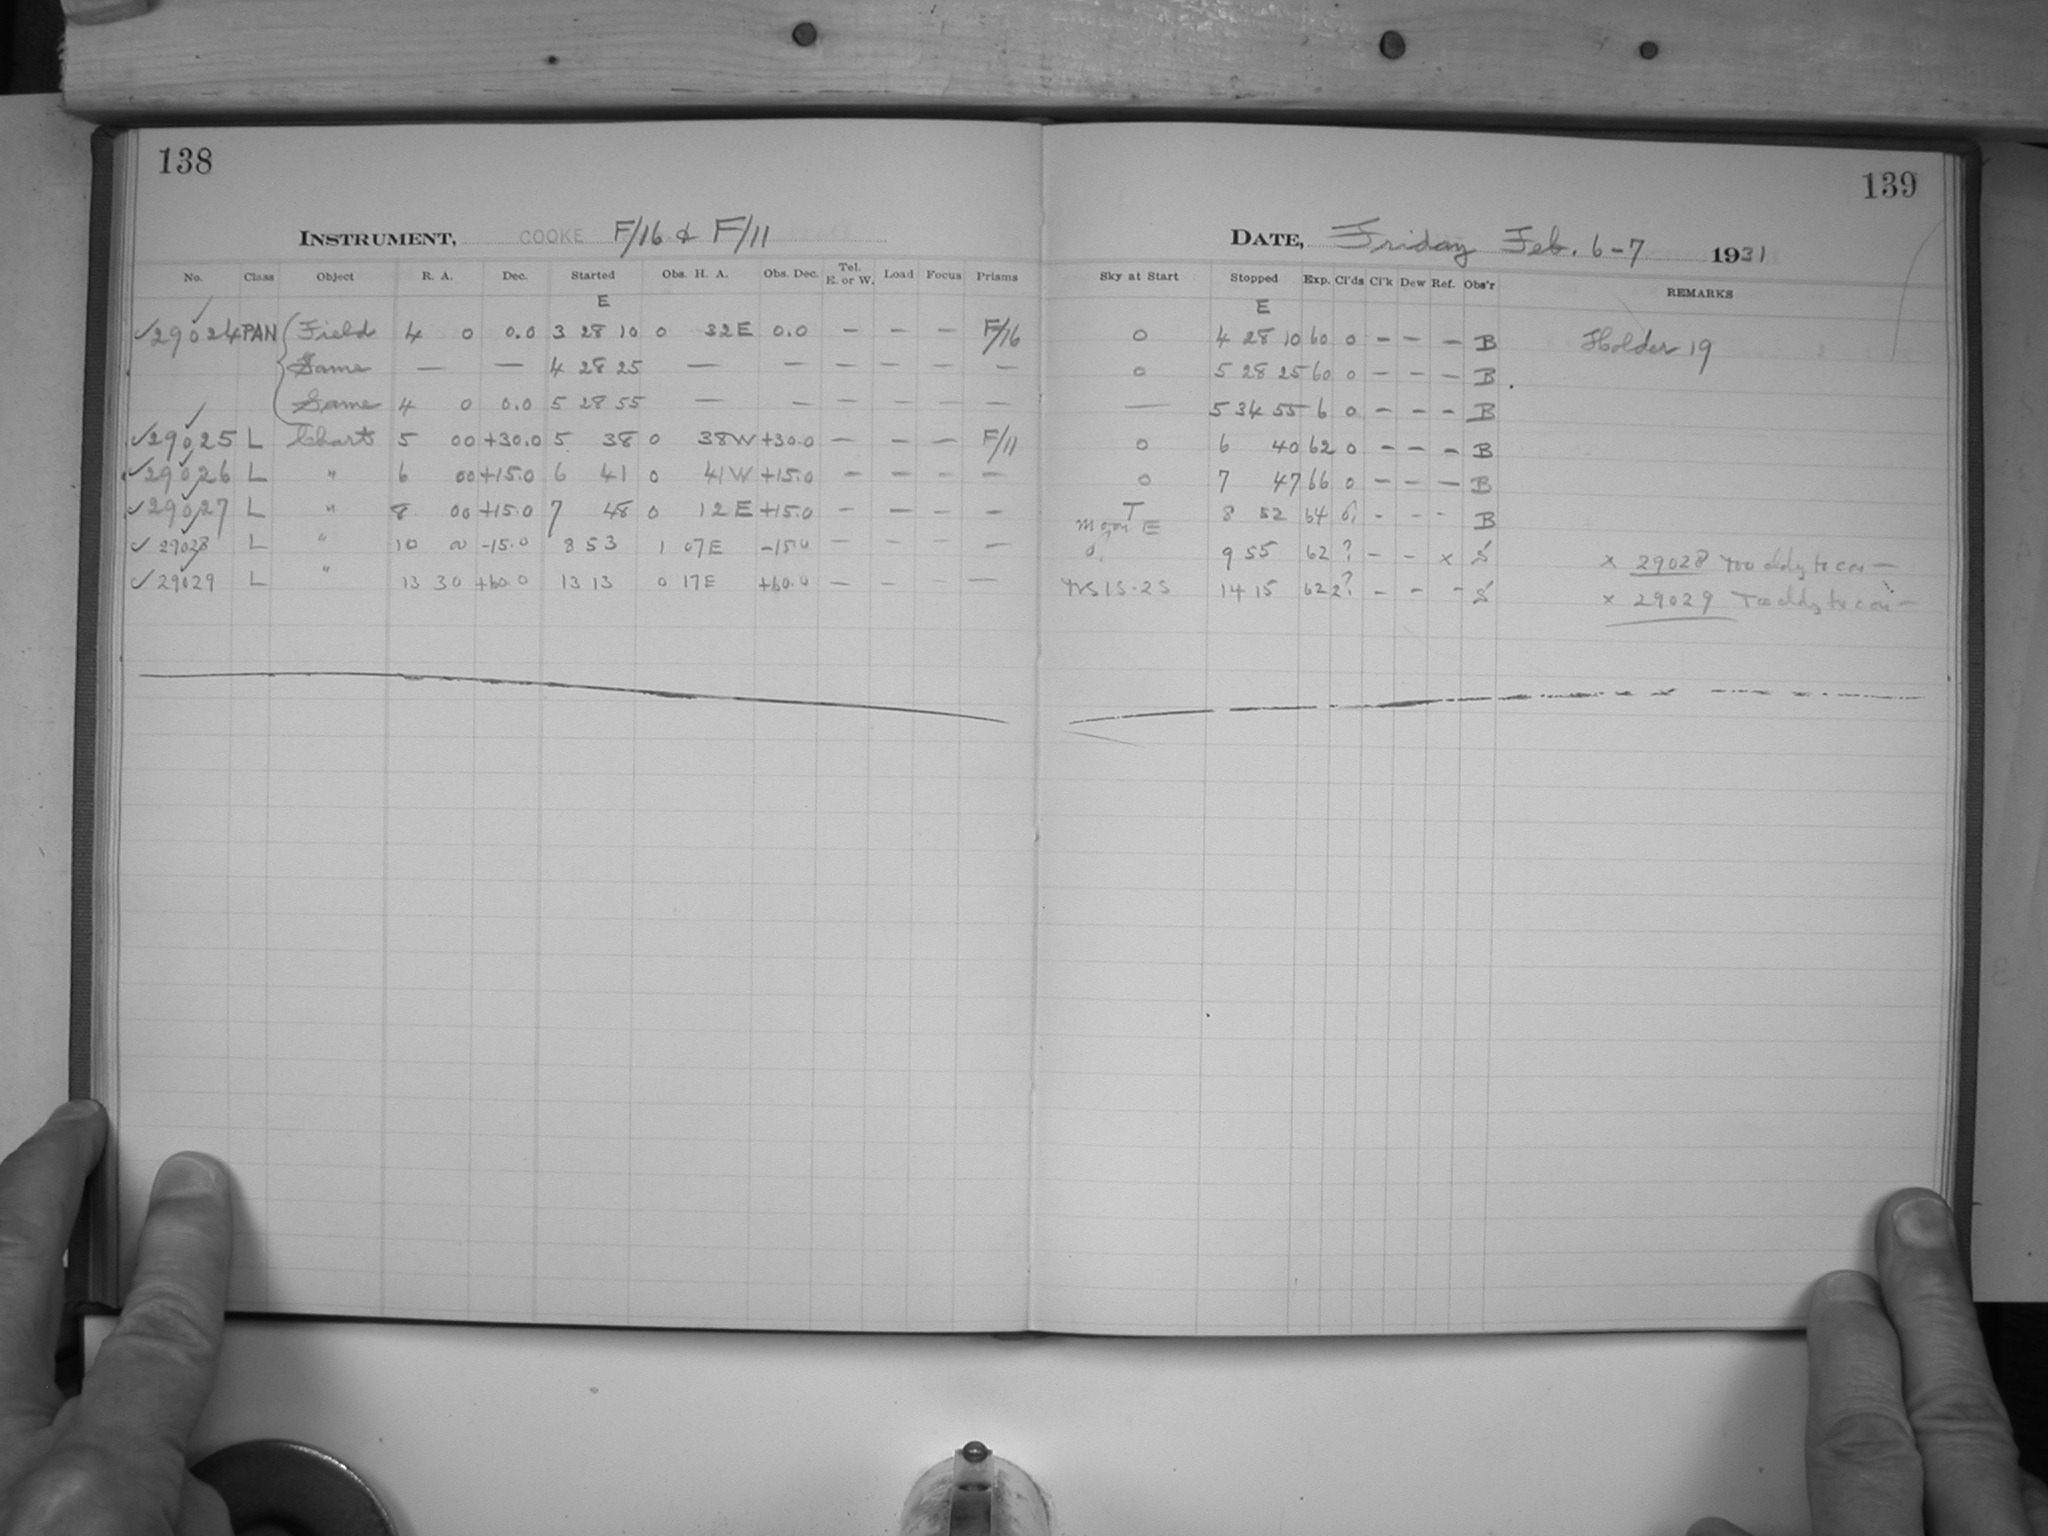 138
INSTRUMENT, COOKE F/16 & F/11
No. Class Object R. A. Dec. Started Obs. H. A. Obs. Dec. Tel. E. or W. Load Focus Prisms
E
✓29024 PAN Field 4 0 0.0 3 28 10 0 32E 0.0 — — — F/16
Same — — 4 28 25 — — — — — —
Same 4 0 0.0 5 28 55 — — — — — —
✓29025 L Chart 5 00 +30.0 5 38 0 38W +30.0 — — — F/11
✓29026 L " 6 00 +15.0 6 41 0 41W +15.0 — — — —
✓29027 L " 8 00 +15.0 7 48 0 12E +15.0 — — — —
✓29028 L " 10 0 -15.0 8 53 1 07E -15.0 — — — —
✓29029 L " 13 30 +60.0 13 13 0 17E +60.0 — — — —
139
DATE, Friday Feb. 6-7 1931
Sky at Start Stopped Exp. Cl'ds Cl'k Dew Ref. Obs'r REMARKS
E
0 4 28 10 60 0 — — — B Holder 19
0 5 28 25 60 0 — — — B
— 5 34 55 6 0 — — — B
0 6 40 62 0 — — — B
0 7 47 66 0 — — — B
T 8 52 64 - - - B
Moon E
0, 9 55 62 ? — — x S x 29028 Too ddy to
15-25 14 15 62 2? — — - S x 29029 Too ddy to